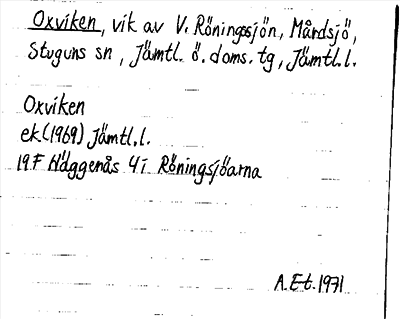 Oxviken, vik av V. Röningssjön, Mårdsjö,
Stuguns sn, Jämtl. ö. doms. tg, Jämtl.l.
Oxviken
ek.(1969) Jämtl.l.
19F Häggenås 4i Röningsjöarna
A.Et.1971